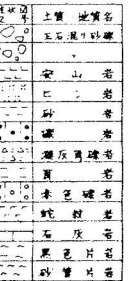 土質 地質名
玉石混り砂礫
〃
安山岩
ヒン岩
砂岩
礫岩
凝灰角礫岩
頁岩
赤色礫岩
蛇紋岩
石灰岩
黒色片岩
砂質片岩